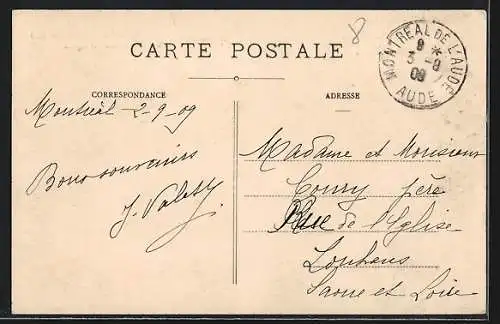 8
CARTE POSTALE
MONTREAL DE L'AUDE
9 *
3 -9
09
AUDE
CORRESPONDANCE
ADRESSE
Montréal 2-9-09
Bons souvenirs
J. Valette
Madame et Monsieur
Coury père
Rue de l'Eglise
Louhans
Saone et Loire